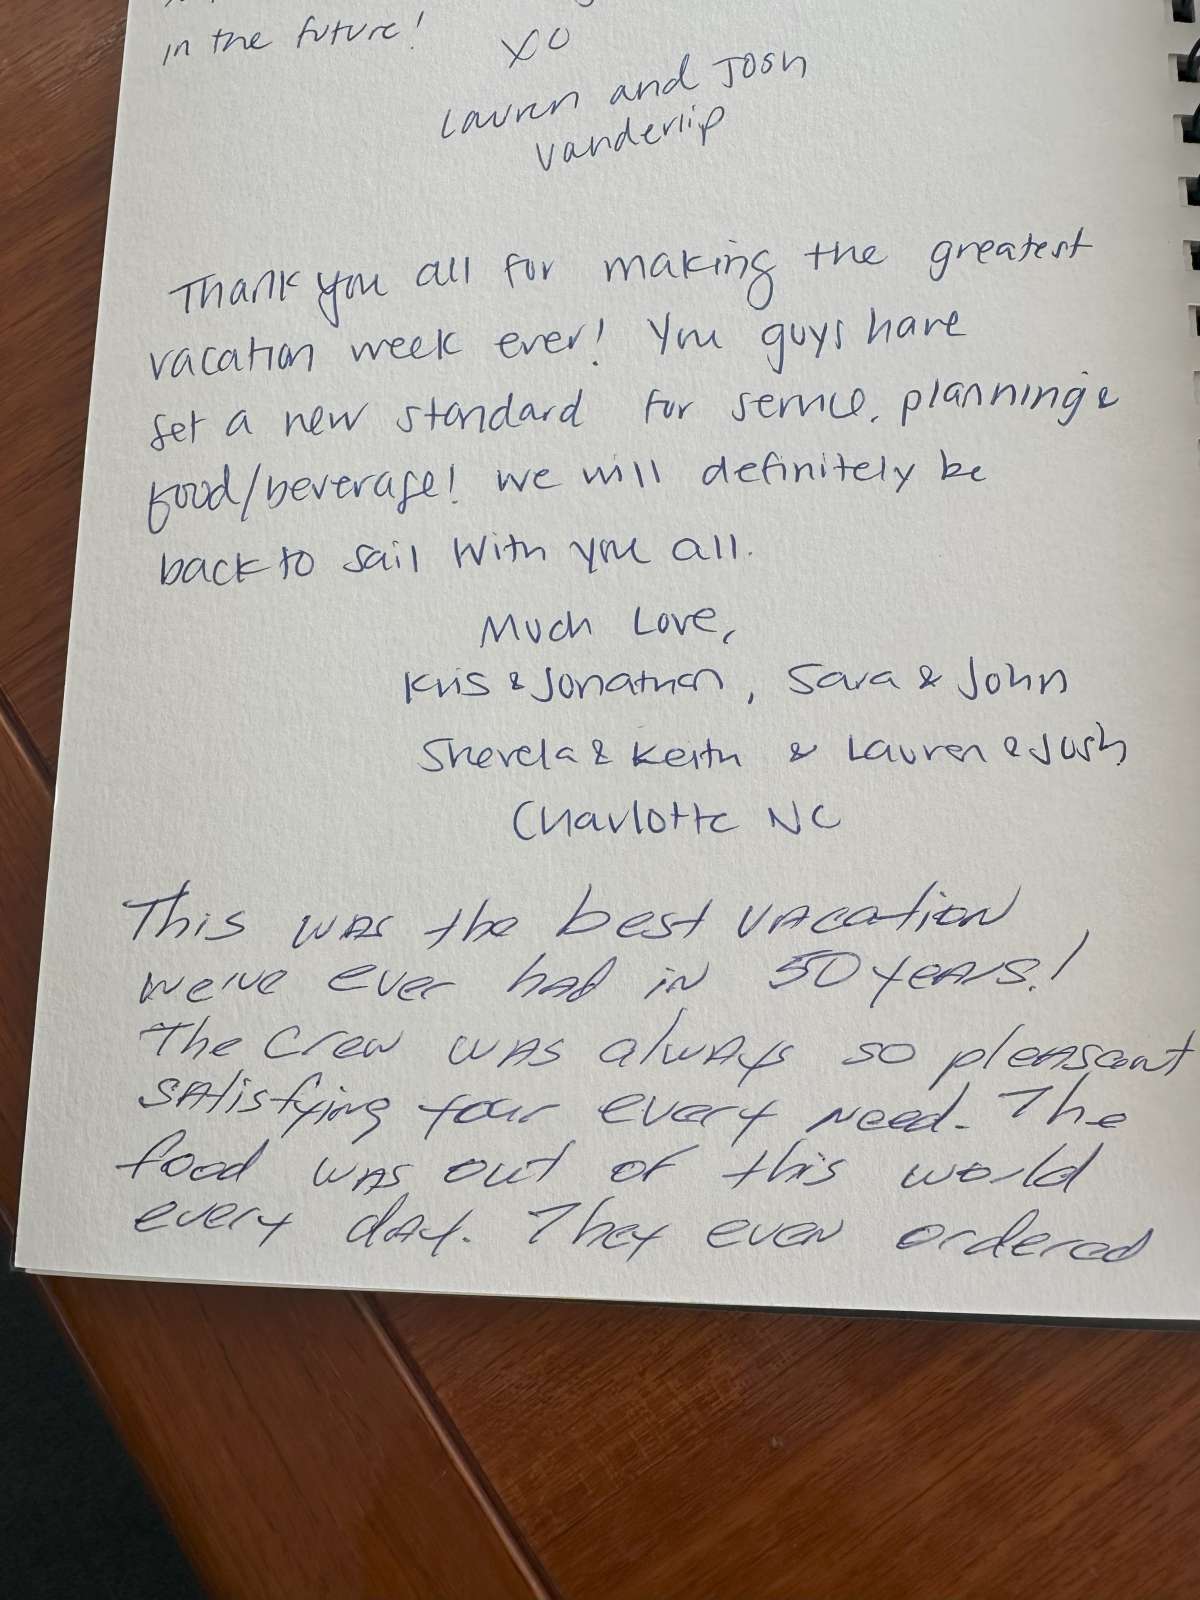 in the future!
XO
Lauren and Josh
Vanderlip
Thank you all for making the greatest
vacation week ever! You guys have
set a new standard for service, planning &
food/beverage! We will definitely be
back to sail with you all.
Much Love,
Kris & Jonathan, Sara & John
Sherela & Keith & Lauren & Josh
Charlotte NC
This was the best vacation
we've ever had in 50 years!
The crew was always so pleasant
satisfying four every need. The
food was out of this world
every day. They even ordered